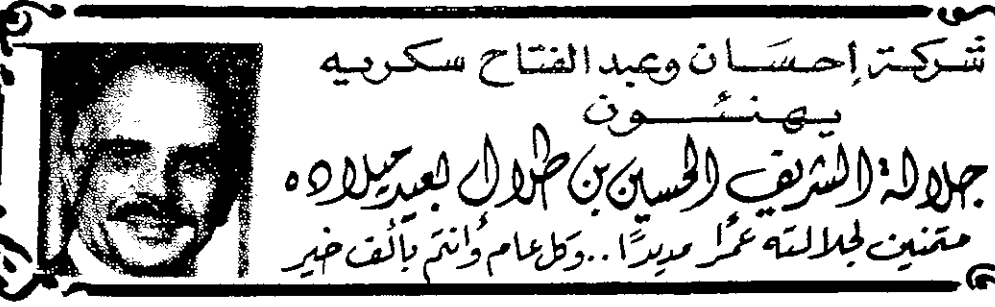 شركة إحسَان وعبد الفتاح سكريه
يهنئون
جلالة الشريف الحسين بن طلال بعيد ميلاده
متمنين لجلالته عمرًا مديدًا . . وكل عام وأنتم بألف خير